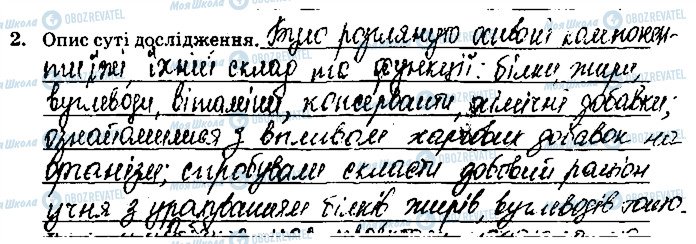 2. Опис суті дослідження. Було розглянуто основні компонен-
ти їжі, їхній склад та функції: білки, жири,
вуглеводи, вітаміни, консерванти, хімічні добавки;
ознайомилися з впливом харчових добавок на
організм; спробували скласти добовий раціон
учня з урахуванням білків жирів вуглеводів